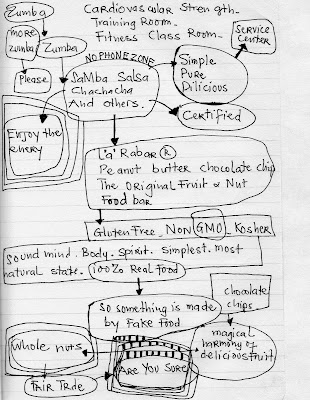 Zumba
Cardiovascular Strength-
Training Room-
Fitness Class Room-
SERVICE
CENTER
more
zumba
Zumba
Please
NO PHONE ZONE
SaMba Salsa
Chachacha
And others.
Simple
Pure
Dilicious
Certified
Enjoy the
enery
L'a'Rabar ®
Peanut butter chocolate chip
The Original Fruit & Nut
Food bar
Gluten Free - NON GMO - Kosher
Sound mind. Body. Spirit. Simplest. most
natural state. 100% Real Food
chocolate
chips
So something is made
by Fake Food
Whole nuts
magical
harmony of
delicious fruit
ARE YOU SURE
FAIR TRde